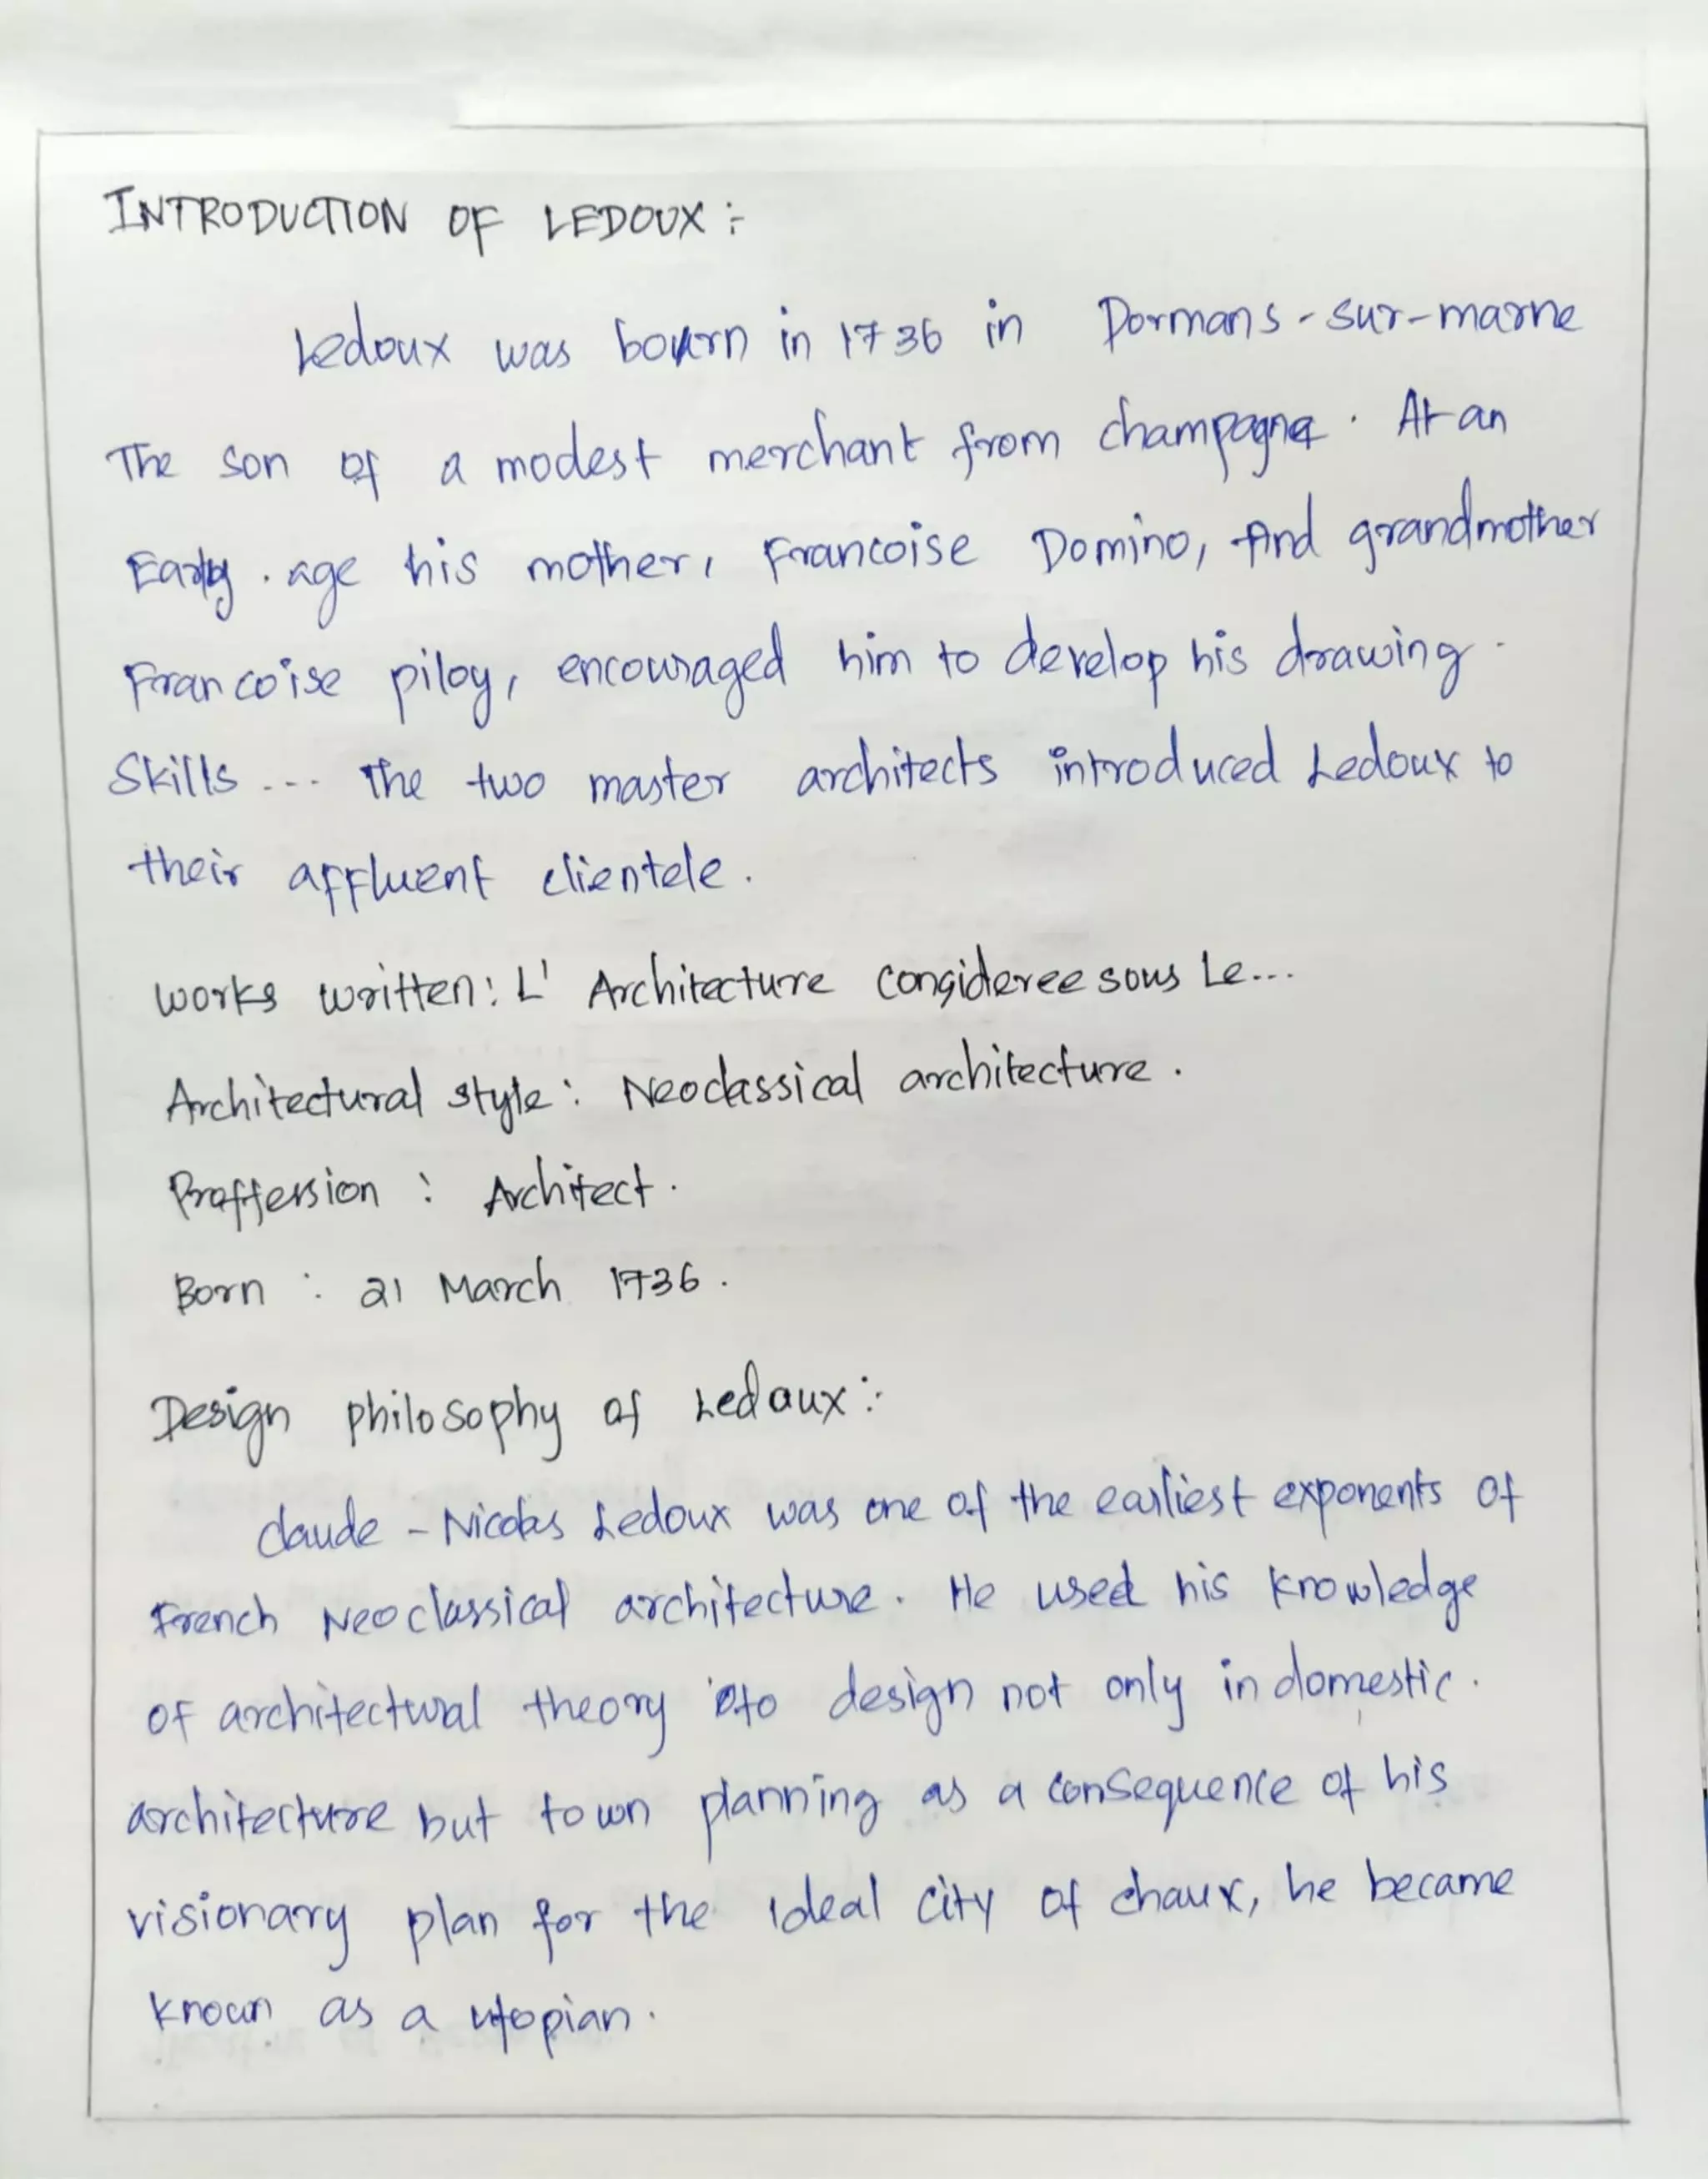 INTRODUCTION OF LEDOUX :-
Ledoux was bourn in 1736 in Dormans-sur-marne
The son of a modest merchant from champagne. At an
Early age his mother, Francoise Domino, And grandmother
Francoise piloy, encouraged him to develop his drawing
Skills ... The two master architects introduced Ledoux to
their affluent clientele.
works written: L' Architecture consideree sous Le...
Architectural style: Neoclassical architecture.
Proffersion : Architect.
Born : 21 March 1736.
Design philosophy of Ledoux:-
Claude - Nicolas Ledoux was one of the earliest exponents of
French Neoclassical architecture. He used his knowledge
of architectural theory to design not only in domestic.
architecture but town planning as a consequence of his
visionary plan for the ideal city of chaux, he became
known as a utopian.